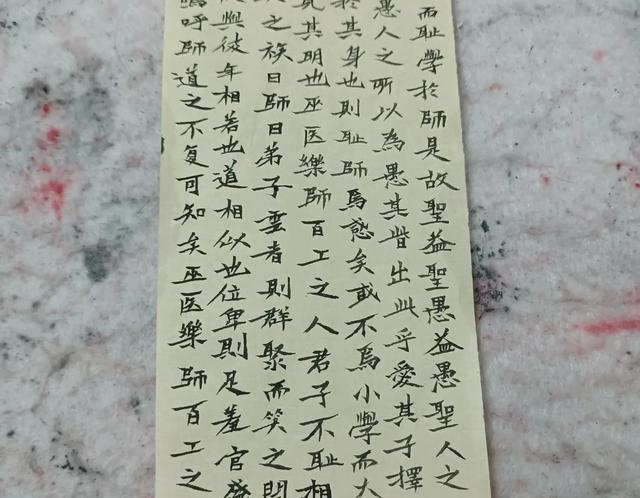 而耻學於師是故聖益聖愚益愚聖人之
愚人之所以為愚其皆出此乎愛其子擇
於其身也則耻師焉惑矣或不焉小學而大
見其明也巫医樂師百工之人君子不耻相
之族曰師曰弟子雲者則群聚而笑之問
與徒年相若也道相似也位卑則足羞官盛
嗚呼師道之不复可知矣巫医樂師百工之